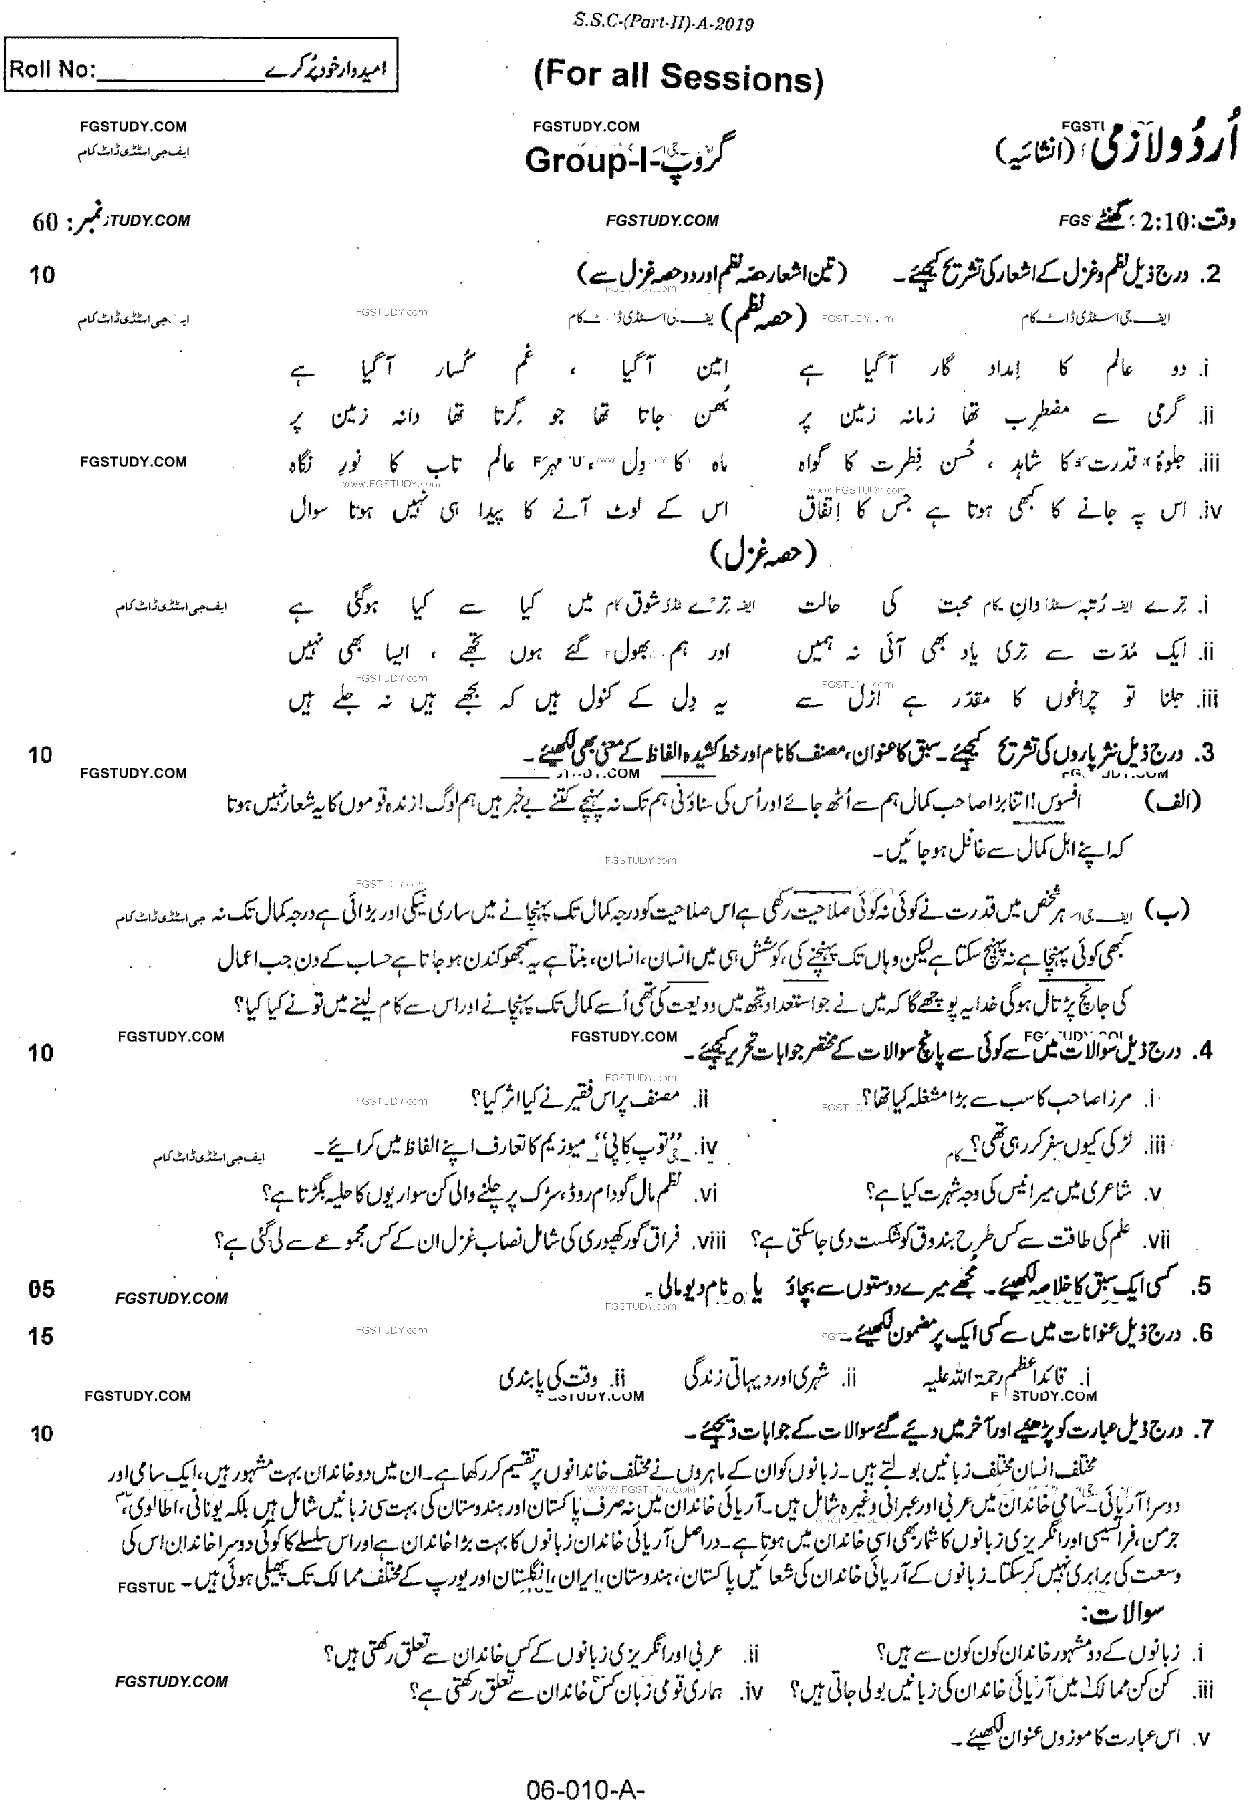 S.S.C-(Part-II)-A-2019
Roll No:____________ امیدوار خود پُر کرے
(For all Sessions)
FGSTUDY.COM FGSTUDY.COM
اُردو لازمی (انشائیہ) گروپ-Group-I ایف جی اسٹڈی ڈاٹ کام
وقت: 2:10 گھنٹے FGSTUDY.COM نمبر: 60
2. درج ذیل نظم و غزل کے اشعار کی تشریح کیجیے۔ (تین اشعار حصہ نظم اور دو حصہ غزل سے) 10
(حصہ نظم)
i. دو عالم کا امداد گار آ گیا ہے امین آ گیا ، غم گسار آ گیا ہے
ii. گرمی سے مضطرب تھا زمانہ زمین پر بُھن جاتا تھا جو گرتا تھا دانہ زمین پر
iii. جلوۂ قدرت کا شاہد ، حُسنِ فطرت کا گواہ ماہ کا دل ، مہر عالم تاب کا نورِ نگاہ
iv. اس پہ جانے کا کبھی ہوتا ہے جس کا اتفاق اس کے لوٹ آنے کا پیدا ہی نہیں ہوتا سوال
(حصہ غزل)
i. ترے رُتبہ دانِ محبت کی حالت ترے شوق میں کیا سے کیا ہوگئی ہے
ii. ایک مُدّت سے تری یاد بھی آئی نہ ہمیں اور ہم بھول گئے ہوں تجھے ، ایسا بھی نہیں
iii. جلنا تو چراغوں کا مقدّر ہے ازل سے یہ دل کے کنول ہیں کہ بجھے ہیں نہ جلے ہیں
3. درج ذیل نثر پاروں کی تشریح کیجیے۔ سبق کا عنوان، مصنف کا نام اور خط کشیدہ الفاظ کے معنی بھی لکھیے۔ 10
(الف) افسوس! اتنا بڑا صاحب کمال ہم سے اُٹھ جائے اور اُس کی سناؤنی ہم تک نہ پہنچے کتنے بے خبر ہیں ہم لوگ! زندہ قوموں کا یہ شعار نہیں ہوتا
کہ اپنے اہل کمال سے غافل ہو جائیں۔
(ب) ہر شخص میں قدرت نے کوئی نہ کوئی صلاحیت رکھی ہے اس صلاحیت کو درجہ کمال تک پہنچانے میں ساری نیکی اور بڑائی ہے درجہ کمال تک نہ
کبھی کوئی پہنچا ہے نہ پہنچ سکتا ہے لیکن وہاں تک پہنچنے کی کوشش ہی میں انسان، انسان، بنتا ہے یہ سمجھو کندن ہو جاتا ہے حساب کے دن جب اعمال
کی جانچ پڑتال ہوگی خدا یہ پوچھے گا کہ میں نے جو استعداد تجھ میں ودیعت کی تھی اُسے کمال تک پہنچانے اور اس سے کام لینے میں تو نے کیا کیا؟
4. درج ذیل سوالات میں سے کوئی سے پانچ سوالات کے مختصر جوابات تحریر کیجیے۔ 10
i. مرزا صاحب کا سب سے بڑا مشغلہ کیا تھا؟ ii. مصنف پر اس فقیر نے کیا اثر کیا؟
iii. لڑکی کیوں سفر کر رہی تھی؟ iv. "توپ کاپی" میوزیم کا تعارف اپنے الفاظ میں کرائیے۔
v. شاعری میں میر انیس کی وجہ شہرت کیا ہے؟ vi. نظم مال گودام روڈ، سڑک پر چلنے والی کن سواریوں کا حلیہ بگڑتا ہے؟
vii. علم کی طاقت سے کس طرح بندوق کو شکست دی جاسکتی ہے؟ viii. فراق گورکھپوری کی شامل نصاب غزل ان کے کس مجموعے سے لی گئی ہے؟
5. کسی ایک سبق کا خلاصہ لکھیے۔ مجھے میرے دوستوں سے بچاؤ یا ○ نام دیو مالی۔ 05
6. درج ذیل عنوانات میں سے کسی ایک پر مضمون لکھیے۔ 15
i. قائداعظم رحمۃ اللہ علیہ ii. شہری اور دیہاتی زندگی ii. وقت کی پابندی
7. درج ذیل عبارت کو پڑھیے اور آخر میں دیے گئے سوالات کے جوابات دیجیے۔ 10
مختلف انسان مختلف زبانیں بولتے ہیں۔ زبانوں کو ان کے ماہروں نے مختلف خاندانوں پر تقسیم کر رکھا ہے۔ ان میں دو خاندان بہت مشہور ہیں، ایک سامی اور
دوسرا آریائی۔ سامی خاندان میں عربی اور عبرانی وغیرہ شامل ہیں۔ آریائی خاندان میں نہ صرف پاکستان اور ہندوستان کی بہت سی زبانیں شامل ہیں بلکہ یونانی، اطالوی،
جرمن، فرانسیسی اور انگریزی زبانوں کا شمار بھی اسی خاندان میں ہوتا ہے۔ دراصل آریائی خاندان زبانوں کا بہت بڑا خاندان ہے اور اس سلسلے کا کوئی دوسرا خاندان اس کی
وسعت کی برابری نہیں کر سکتا۔ زبانوں کے آریائی خاندان کی شعائیں پاکستان، ہندوستان، ایران، انگلستان اور یورپ کے مختلف ممالک تک پھیلی ہوئی ہیں۔
سوالات:
i. زبانوں کے دو مشہور خاندان کون کون سے ہیں؟ ii. عربی اور انگریزی زبانوں کے کس خاندان سے تعلق رکھتی ہیں؟
iii. کن کن ممالک میں آریائی خاندان کی زبانیں بولی جاتی ہیں؟ iv. ہماری قومی زبان کس خاندان سے تعلق رکھتی ہے؟
v. اس عبارت کا موزوں عنوان لکھیے۔
06-010-A-